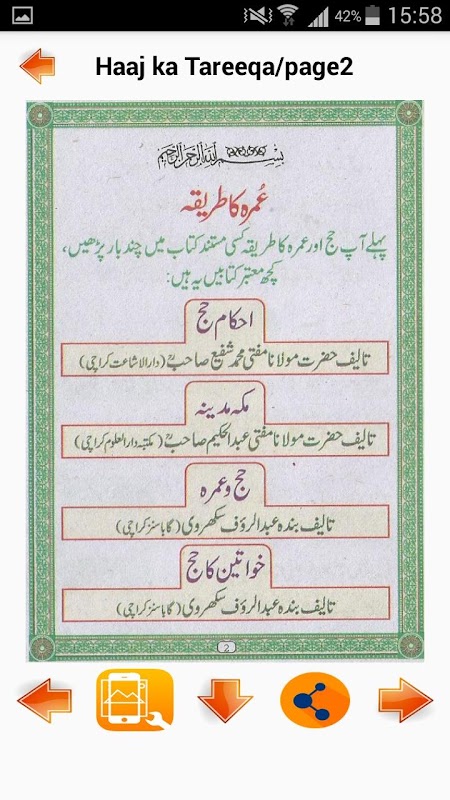 42% 15:58
Haaj ka Tareeqa/page2
بسم اللہ الرحمن الرحیم
عُمرہ کا طریقہ
پہلے آپ حج اور عمرہ کا طریقہ کسی مستند کتاب میں چند بار پڑھیں،
کچھ معتبر کتابیں یہ ہیں:
احکام حج
تالیف حضرت مولانا مفتی محمد شفیع صاحبؒ (دارالاشاعت کراچی)
مکہ مدینہ
تالیف حضرت مولانا مفتی عبدالحکیم صاحبؒ (مکتبہ دارالعلوم کراچی)
حج و عمرہ
تالیف بندہ عبدالرؤف سکھروی (گاباسنز کراچی)
خواتین کا حج
تالیف بندہ عبدالرؤف سکھروی (گاباسنز کراچی)
2